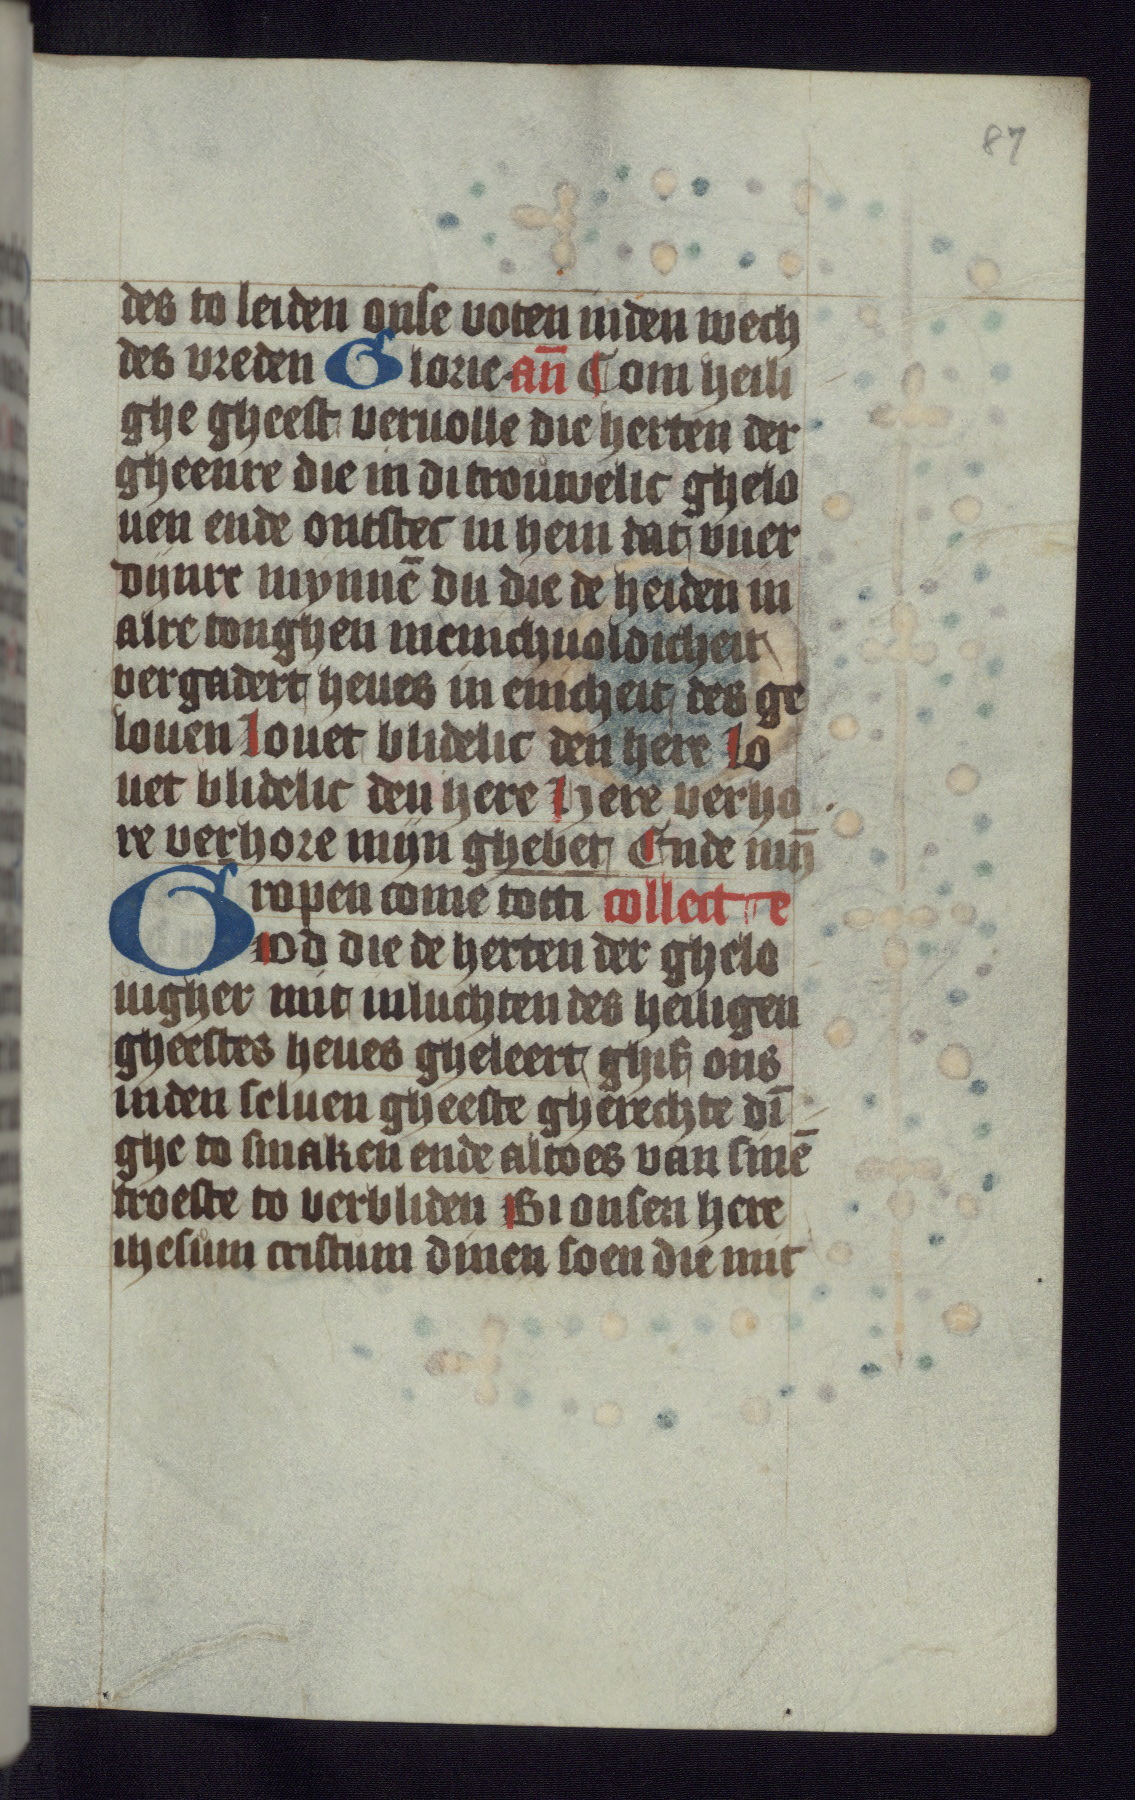 87
des to leiden onse voten inden wech
des vreden Glorie. an̄ Com heili
ghe gheest vervolle die herten der
gheenre die in di trouwelic ghelo
uen ende ontstec in hem dat vuer
dijnre mynnē Du die de heiden in
alre tonghen menichuoldicheit
vergadert heues in enicheit des ge
louen louet blidelic den here lo
uet blidelic den here Here verho
re verhore mijn ghebet Ende mȳ
ropen come totti collecte
God die de herten der ghelo
uigher mit inluchten des heiligen
gheestes heues gheleert ghif ons
inden seluen gheeste gherechte dī
ghe to smaken ende altoes van sinē
troeste to verbliden Bi onsen here
ihesum cristum dinen soen die mit